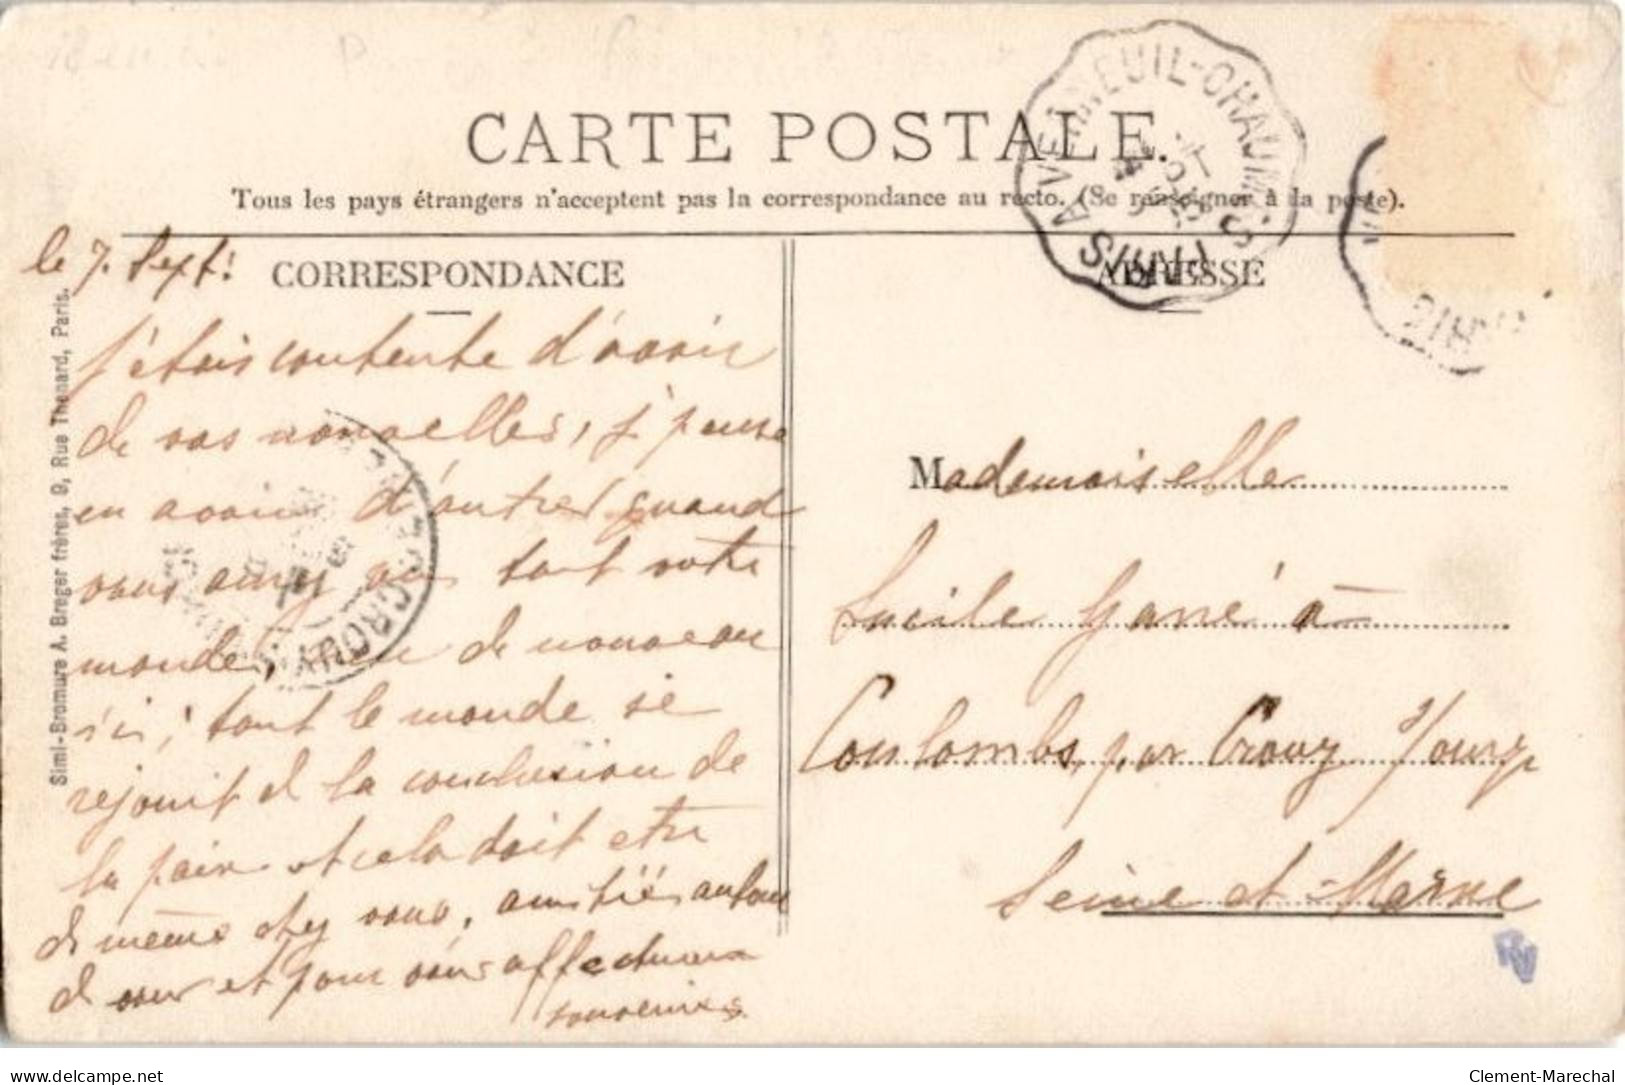 CARTE POSTALE.
Tous les pays étrangers n'acceptent pas la correspondance au recto. (Se renseigner à la poste).
le 7. Sept!
CORRESPONDANCE
ADRESSE
j'étais contente d'avoir
de vos nouvelles, j' pense
en avoir d'autres quand
vous aurez vu tout votre
monde, de nouveau
ici; tout le monde se
rejouit de la conclusion de
la paix et cela doit etre
de même chez vous, amitiés autour
de vous et pour vous affectueux
souvenirs
Mademoiselle
Lucile Garré à
Coulombs, par Crouy s/Ourcq
Seine et Marne
Simi-Bromure A. Breger frères, 9, Rue Thenard, Paris.
VERNEUIL-CHAUM
PARIS
CROUY
delcampe.net
Clement-Marechal